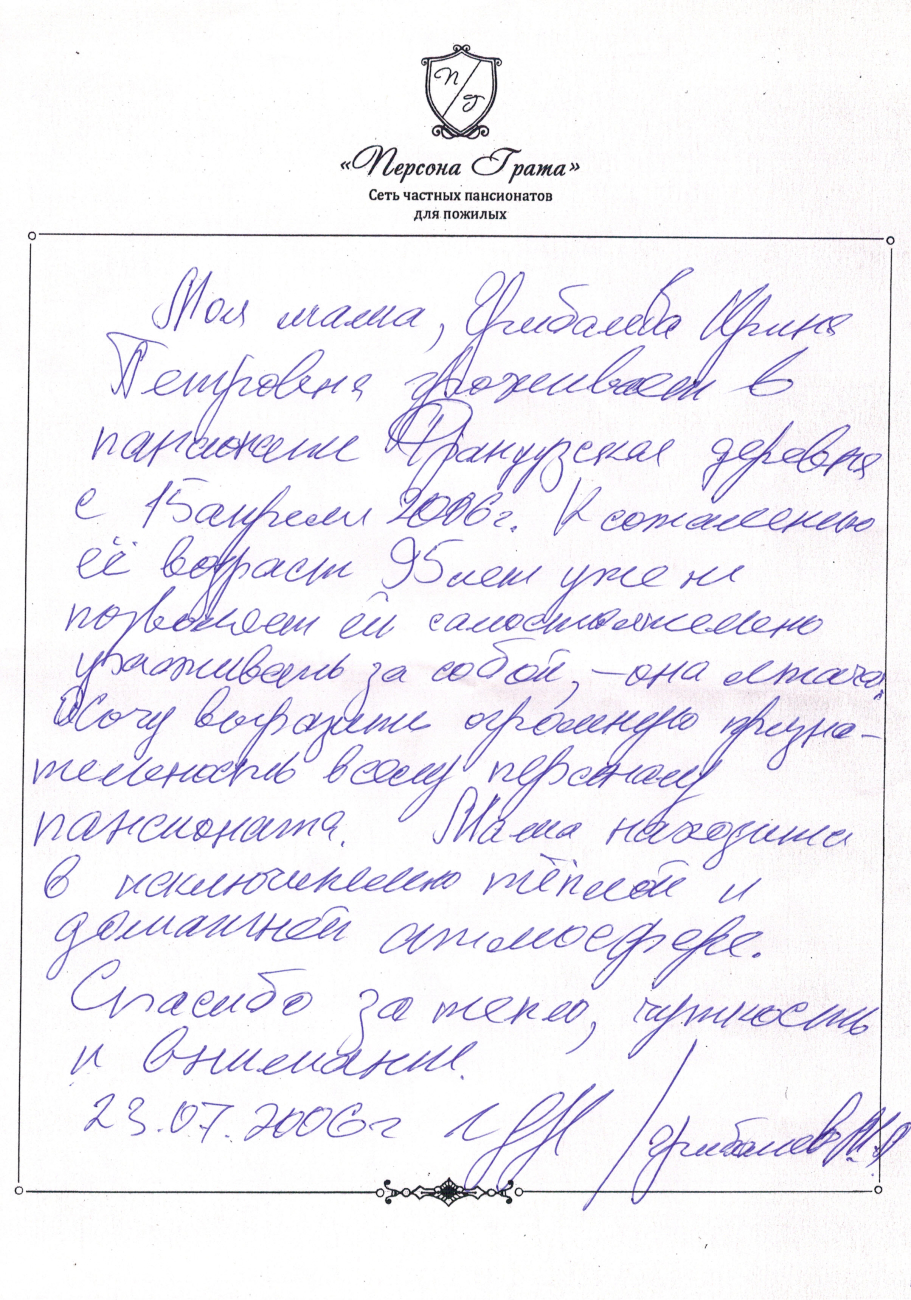 П/Г
«Персона Грата»
Сеть частных пансионатов
для пожилых
Моя мама, Ирина
Петровна проживает в
пансионате Французская деревня
с 15 апреля 2006г. К сожалению
её возраст 95 лет уже не
позволяет ей самостоятельно
ухаживать за собой, – она лежачая.
Хочу выразить огромную призна-
тельность всему персоналу
пансионата. Мама находится
в исключительно тёплой и
домашней атмосфере.
Спасибо за тепло, чуткость
и внимание.
23.07.2006г